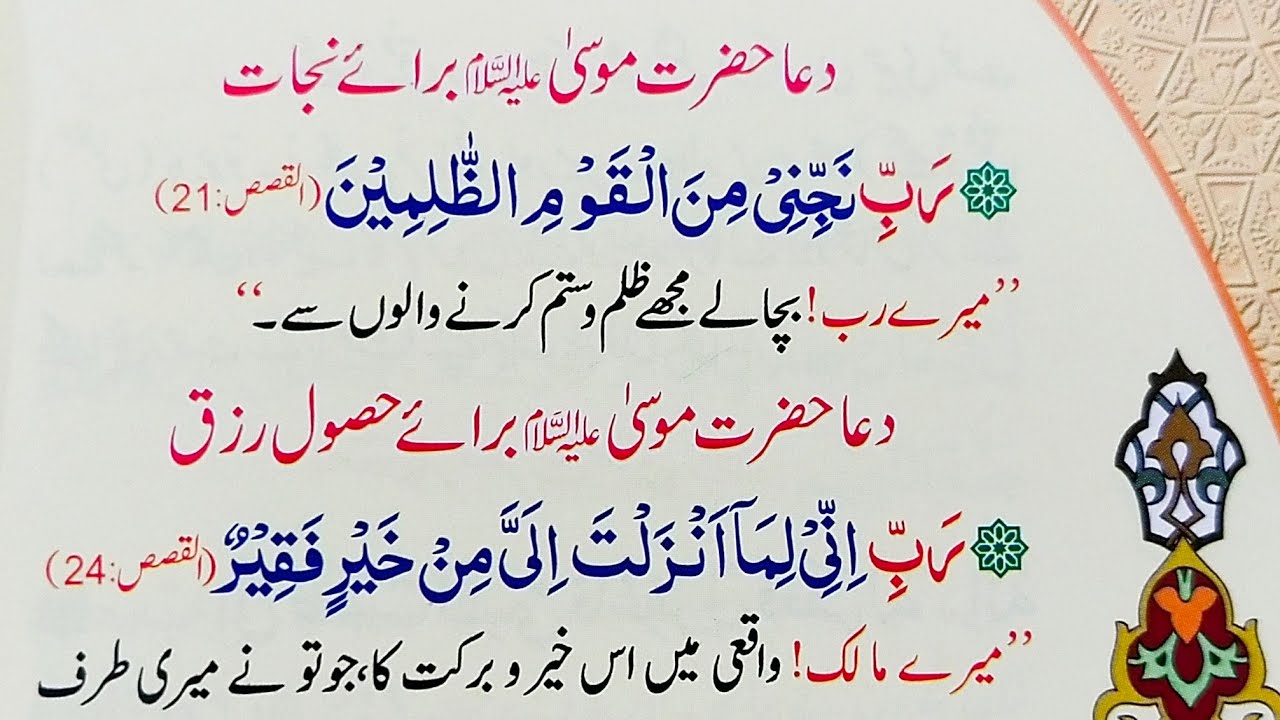 دعا حضرت موسیٰ علیہ السلام برائے نجات
رَبِّ نَجِّنِیْ مِنَ الْقَوْمِ الظّٰلِمِیْنَ (القصص:21)
’’میرے رب! بچالے مجھے ظلم و ستم کرنے والوں سے۔‘‘
دعا حضرت موسیٰ علیہ السلام برائے حصول رزق
رَبِّ اِنِّیْ لِمَاۤ اَنْزَلْتَ اِلَیَّ مِنْ خَیْرٍ فَقِیْرٌ (القصص:24)
’’میرے مالک! واقعی میں اس خیر و برکت کا، جو تو نے میری طرف